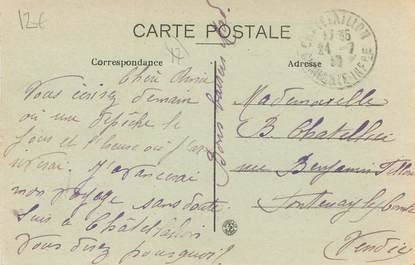 12€
CARTE POSTALE
Correspondance
Adresse
CHATELAILLON
17 35
24 - 7
CHARENTE-INFRE
Chère Amie
Vous écrirez demain
ou une dépêche le
jour et l'heure où j'
mon voyage sans doute
Suis à Châtelaillon
Vous direz pourquoi
Bons baisers
Mademoiselle
B. Chatellier
rue Benjamin Fillon
Fontenay le Comte
Vendée